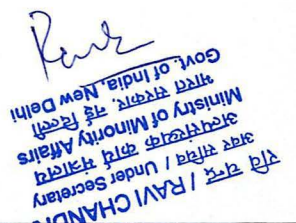 रवि चन्द्र / RAVI CHAND
अवर सचिव / Under Secretary
अल्पसंख्यक कार्य मंत्रालय
Ministry of Minority Affairs
भारत सरकार, नई दिल्ली
Govt. of India, New Delhi